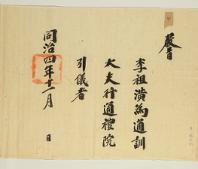 敎旨
李祖潢爲通訓
大夫行通禮院
引儀者
同治四年十二月　日